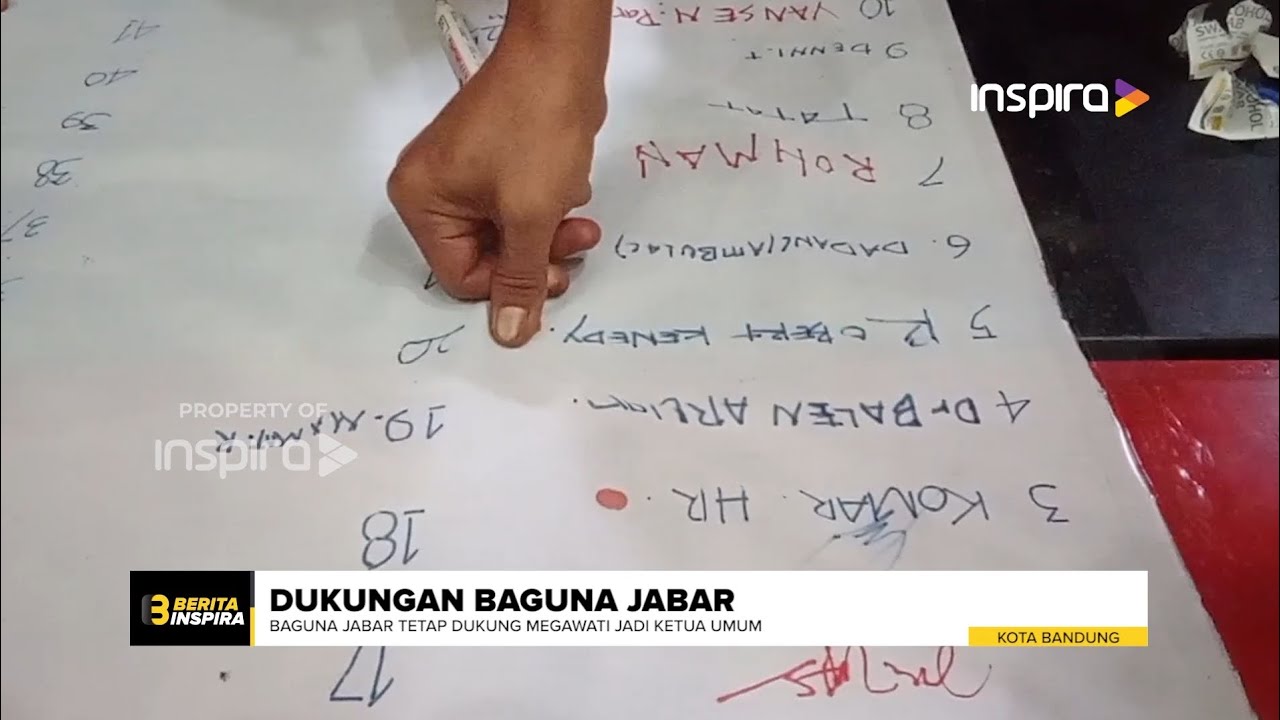 10 YANSEN. Par
9 DENNI.T
8 TATAT
7 ROHMAN
6. DADANG (AMBULAC)
5 ROBERT KENEDY.
4 Dr BALEN ARLIAN.
3 KOMAR. HR.
41
40
39
38
37.
20
19. MAMAN. R
18
17
inspira
PROPERTY OF
inspira
BERITA
INSPIRA
DUKUNGAN BAGUNA JABAR
BAGUNA JABAR TETAP DUKUNG MEGAWATI JADI KETUA UMUM
KOTA BANDUNG
SWABS